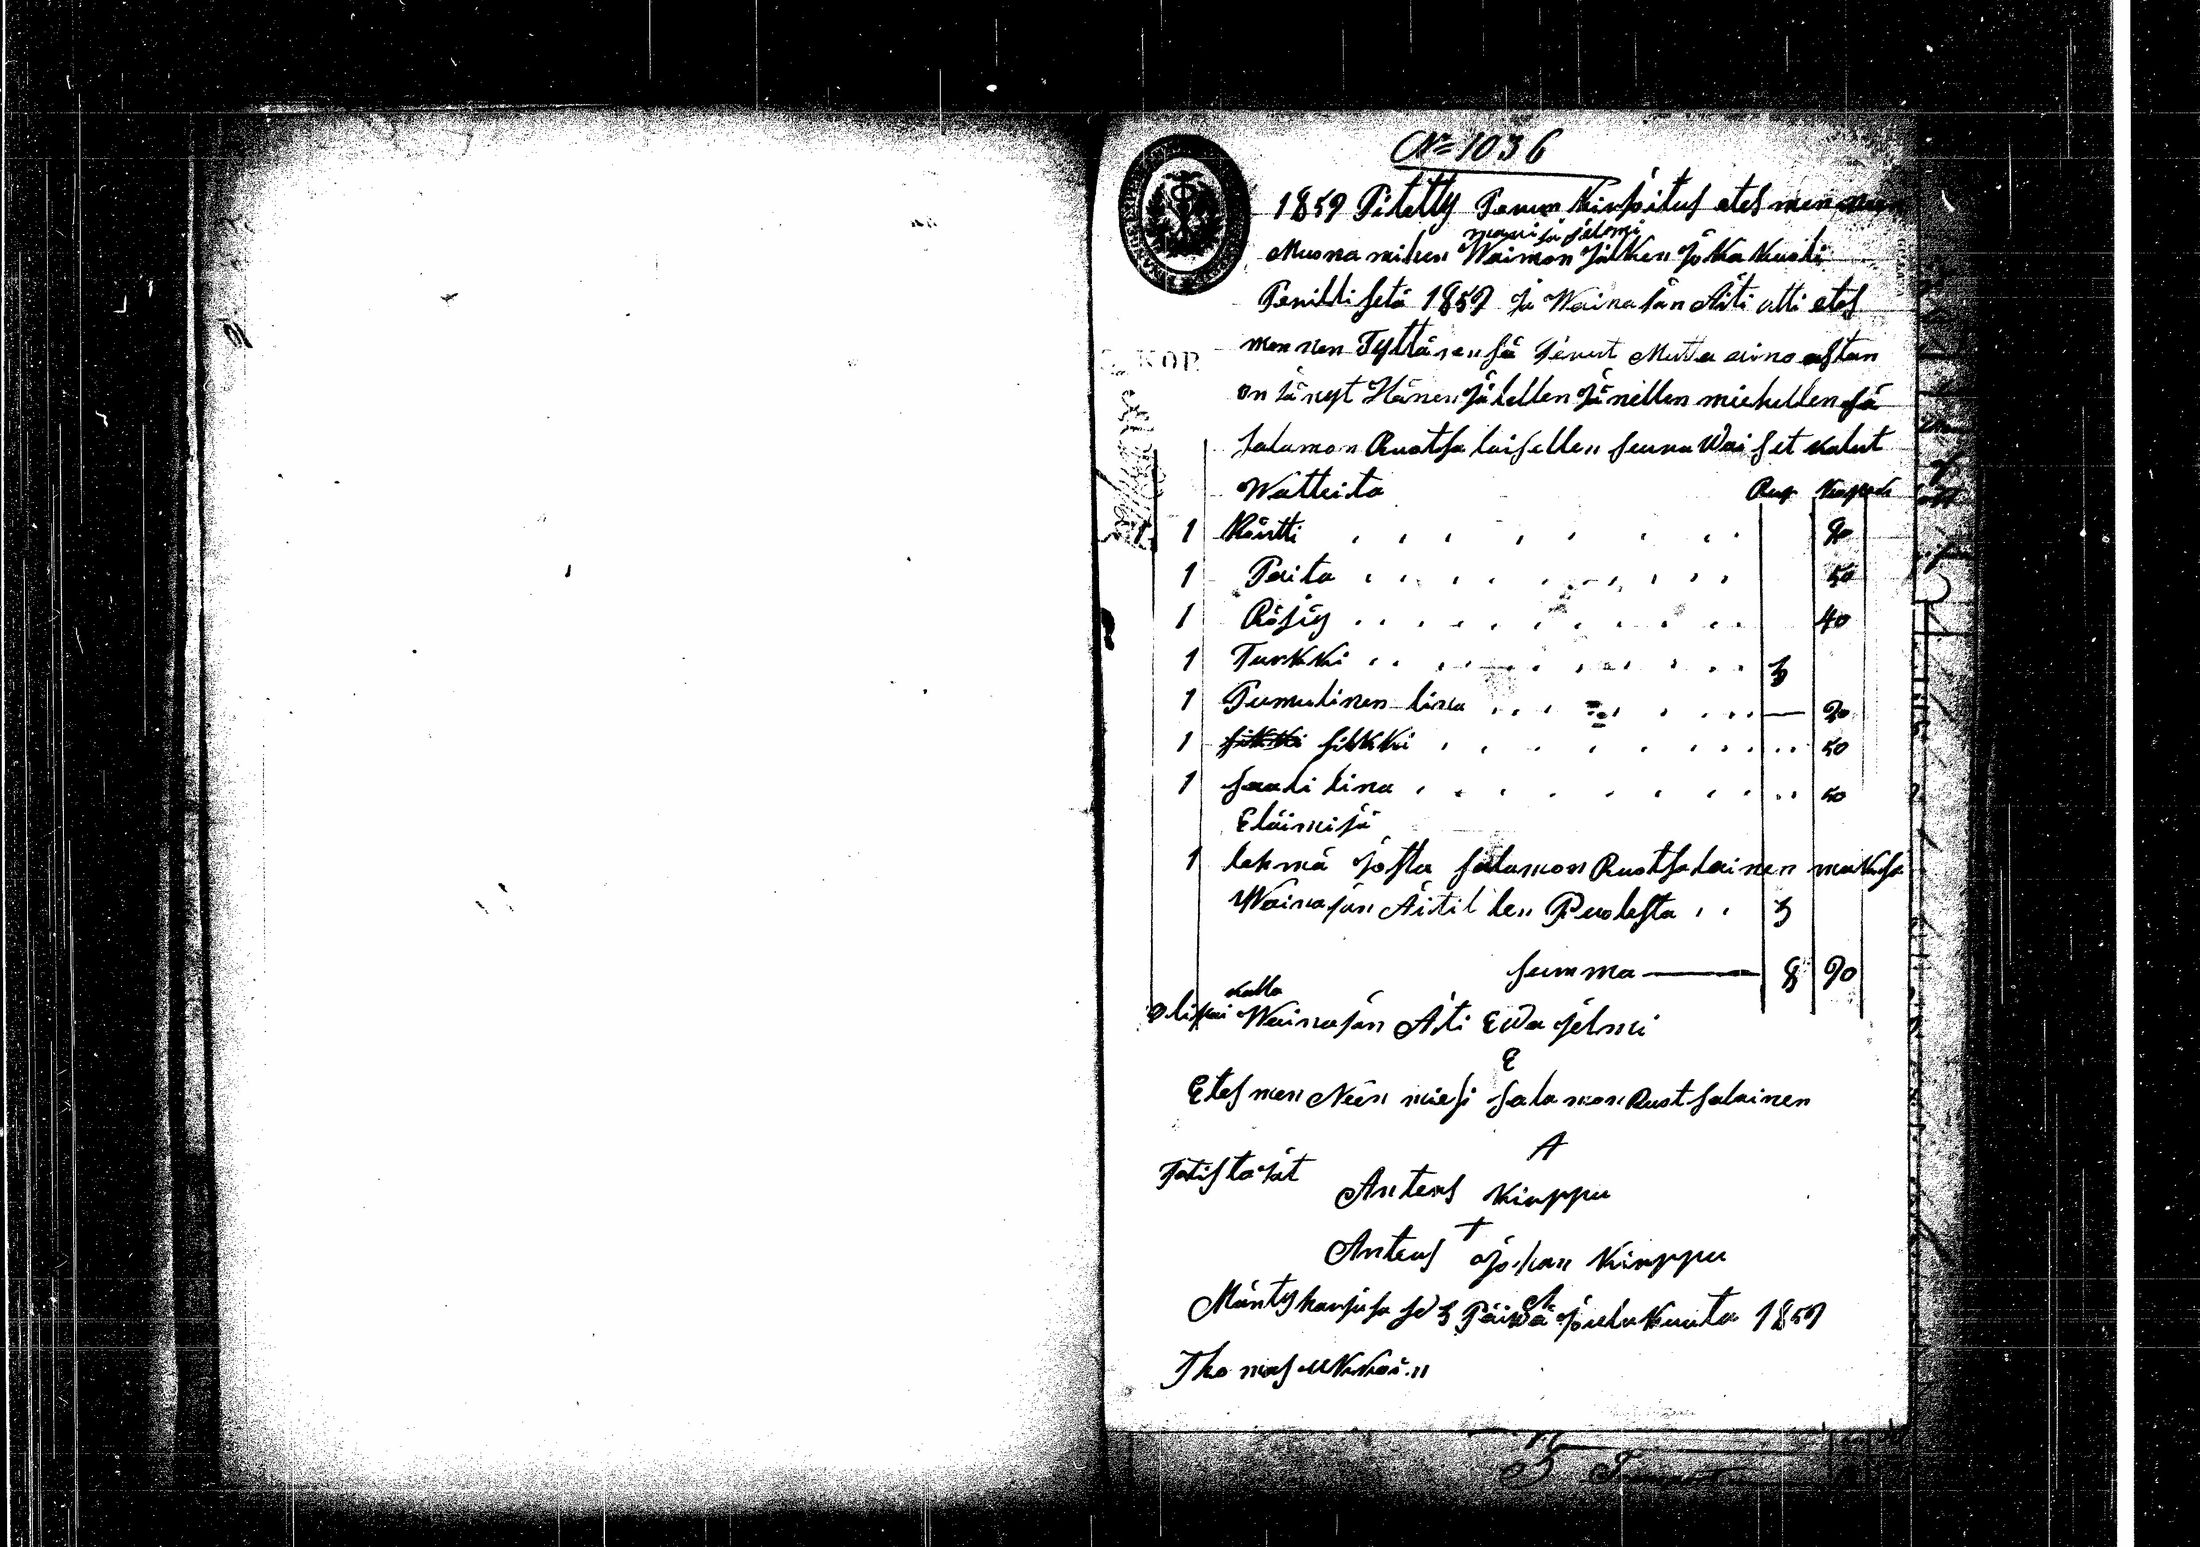 No 1036
1859 Pitetty Perun Kirjoitus etes men neen
mari ja jelmi
Muona mihen Waimon jälken joka kuoli
1859 ja Waina jan Äiti otti etes
men nen Tyttären sä Mutta aino astan
on jänyt Hänen jälellen jänellen miehellen sä
Salamon Ruotsa laisellen seura Wai set kalut
Watteita Rup Kopek
1 Röntti 90
1 Paita 50
1 Röjy 40
1 Turkki 3
1 Pumulinen lina 20
1 silkki 50
1 saali lina 50
Eläimijä
1 lehmä josta salamon Ruotsalainen maksa
Waina jan Äitil len Puolesta 3
summa 8 90
Olipai kalla Wainajan Äiti Ewa jelmi
E
Etes men Neen miesi Salamon Ruotsalainen
A
Totistajat
Anters Kirppu
T
Anters Johan Kirppu
Mäntyharjusa se 3 Päiwä joulu Kuuta 1859
Thomas Ukkoin